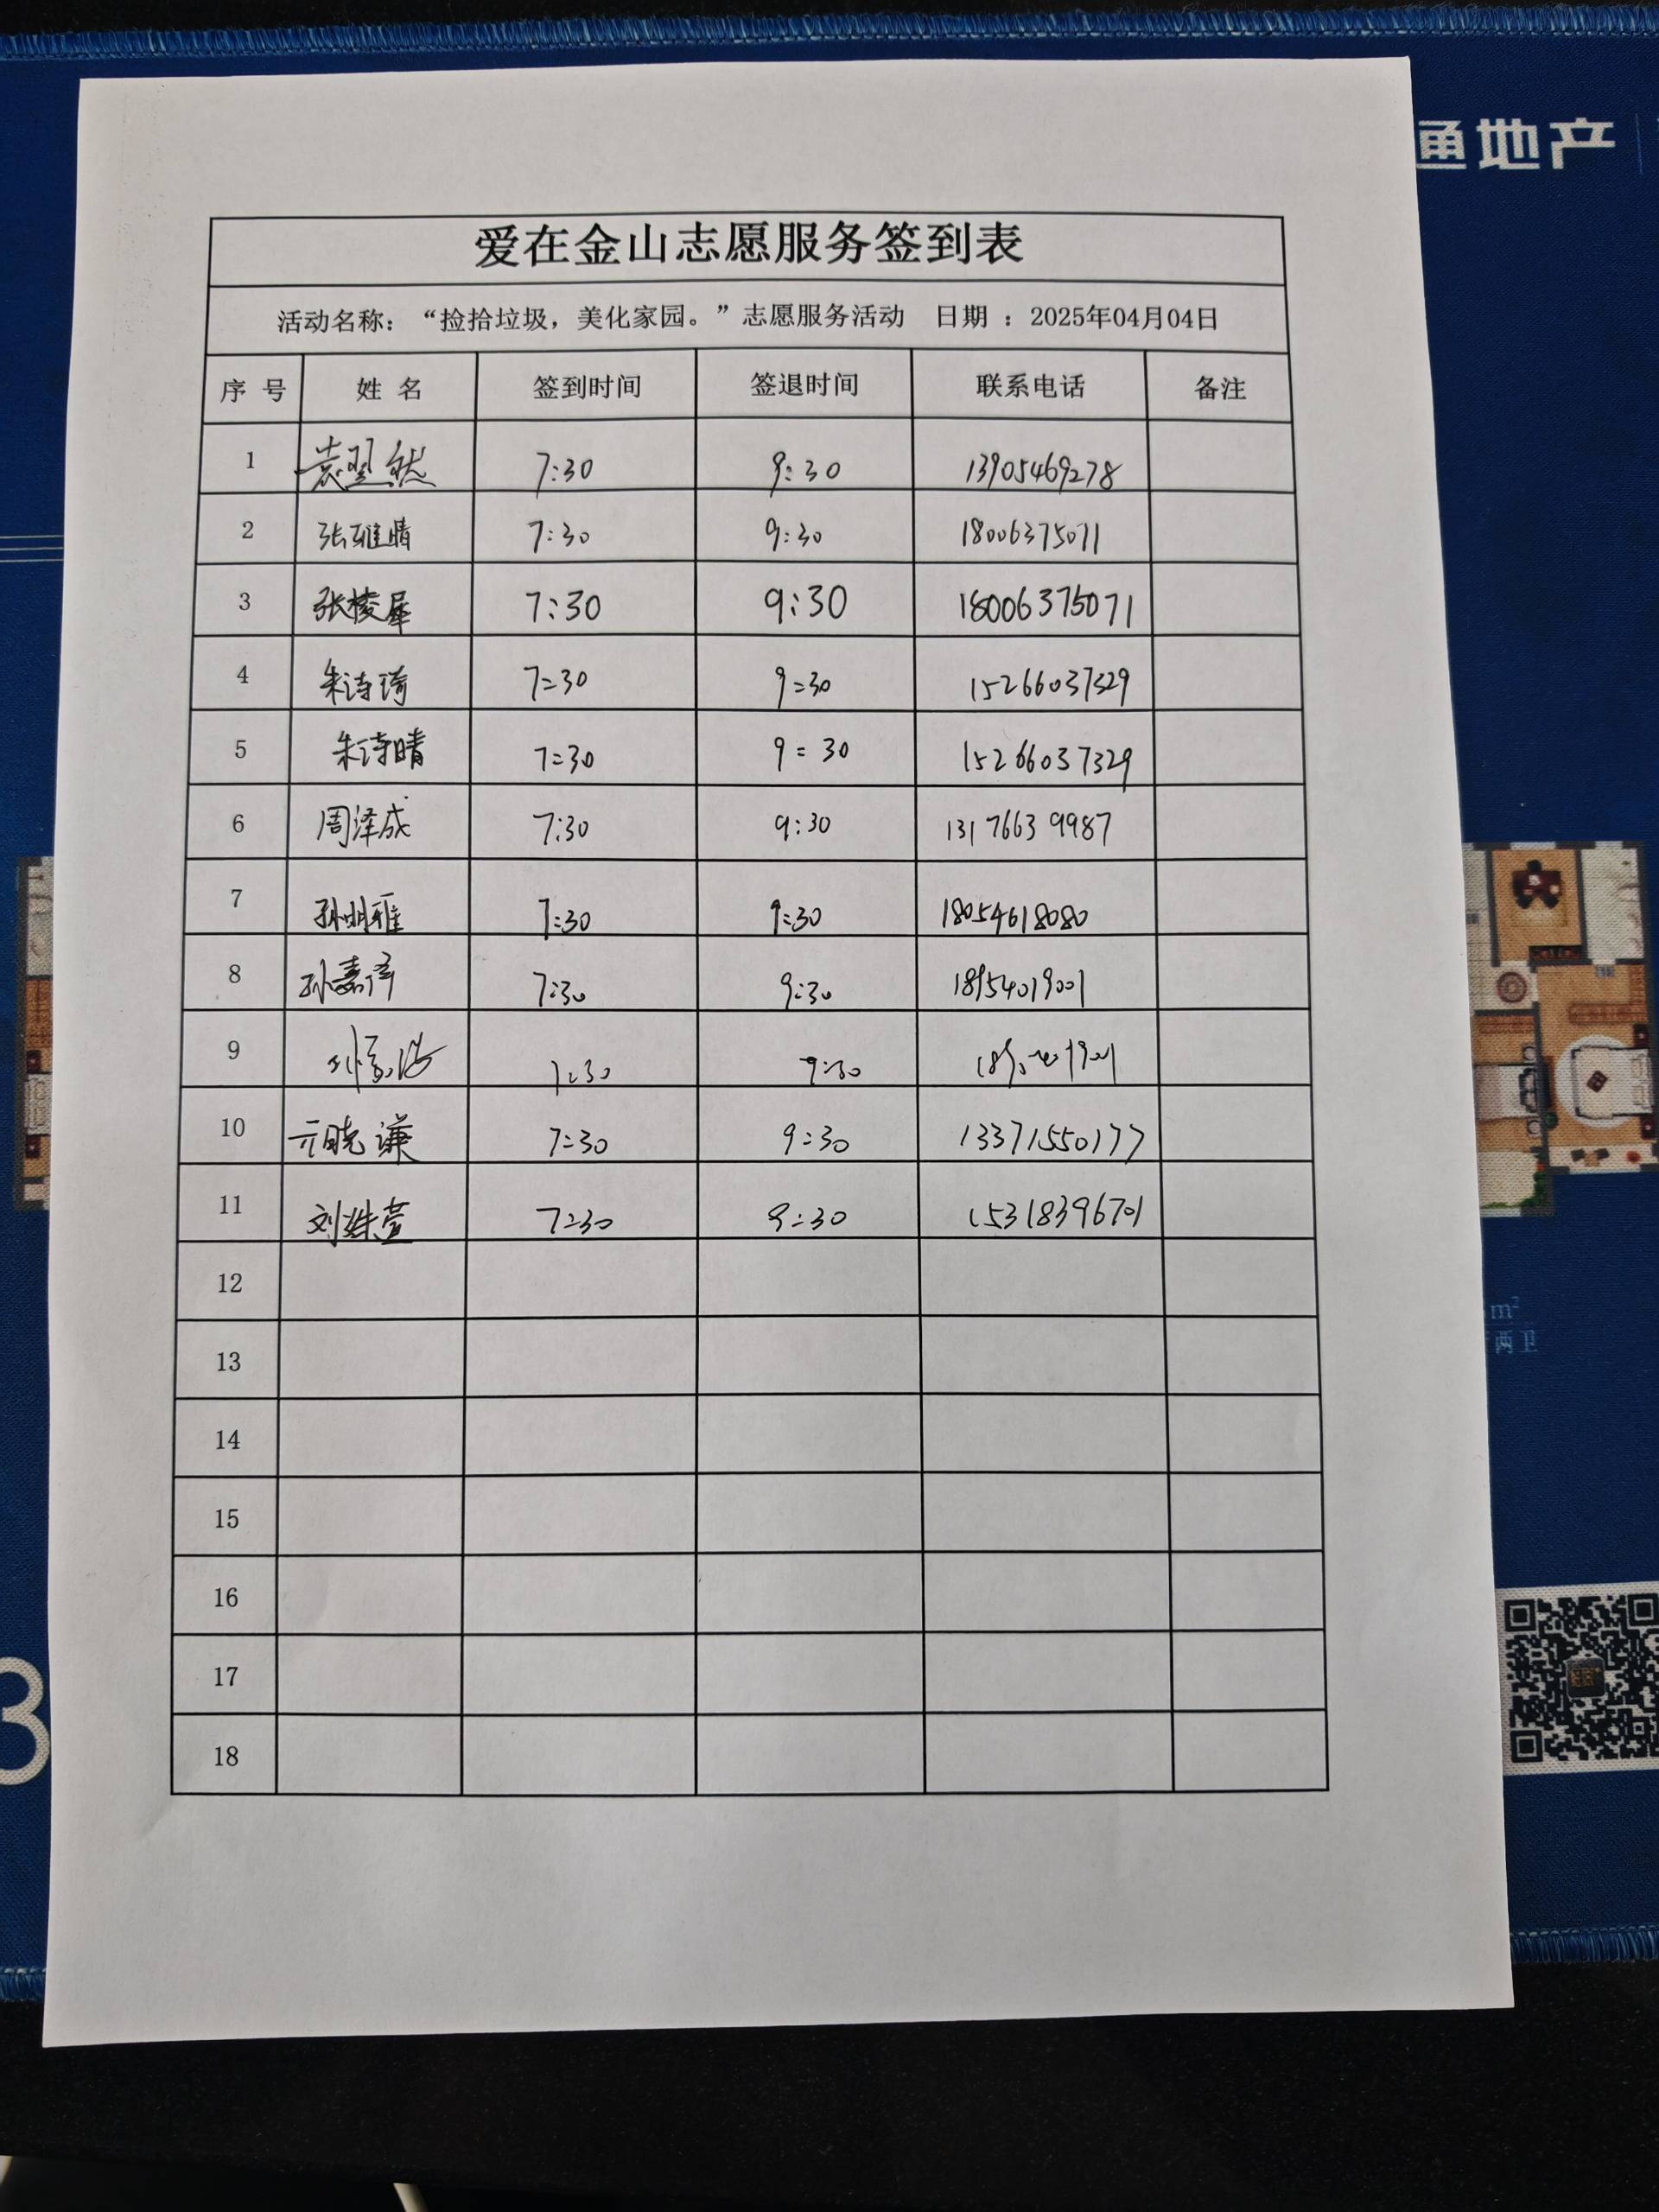 通地产
爱在金山志愿服务签到表
活动名称：“捡拾垃圾，美化家园。”志愿服务活动 日期 ：2025年04月04日
序 号 姓 名 签到时间 签退时间 联系电话 备注
1 袁翌然 7:30 9:30 13905469278
2 张雅晴 7:30 9:30 18006375071
3 张棱犀 7:30 9:30 18006375071
4 朱诗琦 7:30 9:30 15266037329
5 朱诗晴 7:30 9:30 15266037329
6 周泽成 7:30 9:30 13176639987
7 孙明雅 7:30 9:30 18054618080
8 孙嘉泽 7:30 9:30 18954019001
9 7:30 9:30
10 亓晓谦 7:30 9:30 13371550177
11 刘姝萱 7:30 9:30 15318396701
12
13
14
15
16
17
18
m²
两卫
3